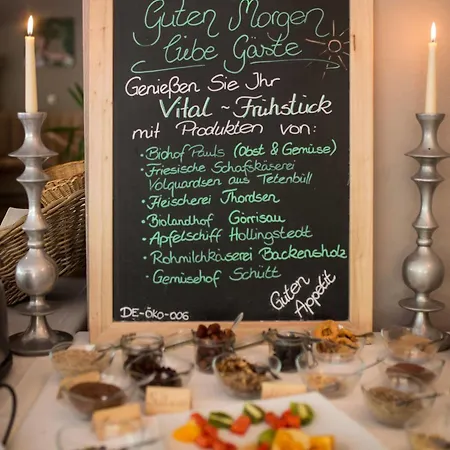 Guten Morgen
liebe Gäste
Genießen Sie Ihr
Vital ~ Frühstück
mit Produkten von:
• Biohof Pauls (Obst & Gemüse)
• Friesische Schafskäserei
Volquardsen aus Tetenbüll
• Fleischerei Thordsen
• Biolandhof Görrisau
• Apfelschiff Hollingstedt
• Rohmilchkäserei Backensholz
• Gemüsehof Schütt
Guten Appetit
DE-ÖKO-006